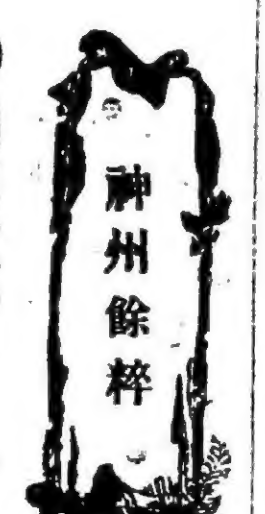 神州餘粹